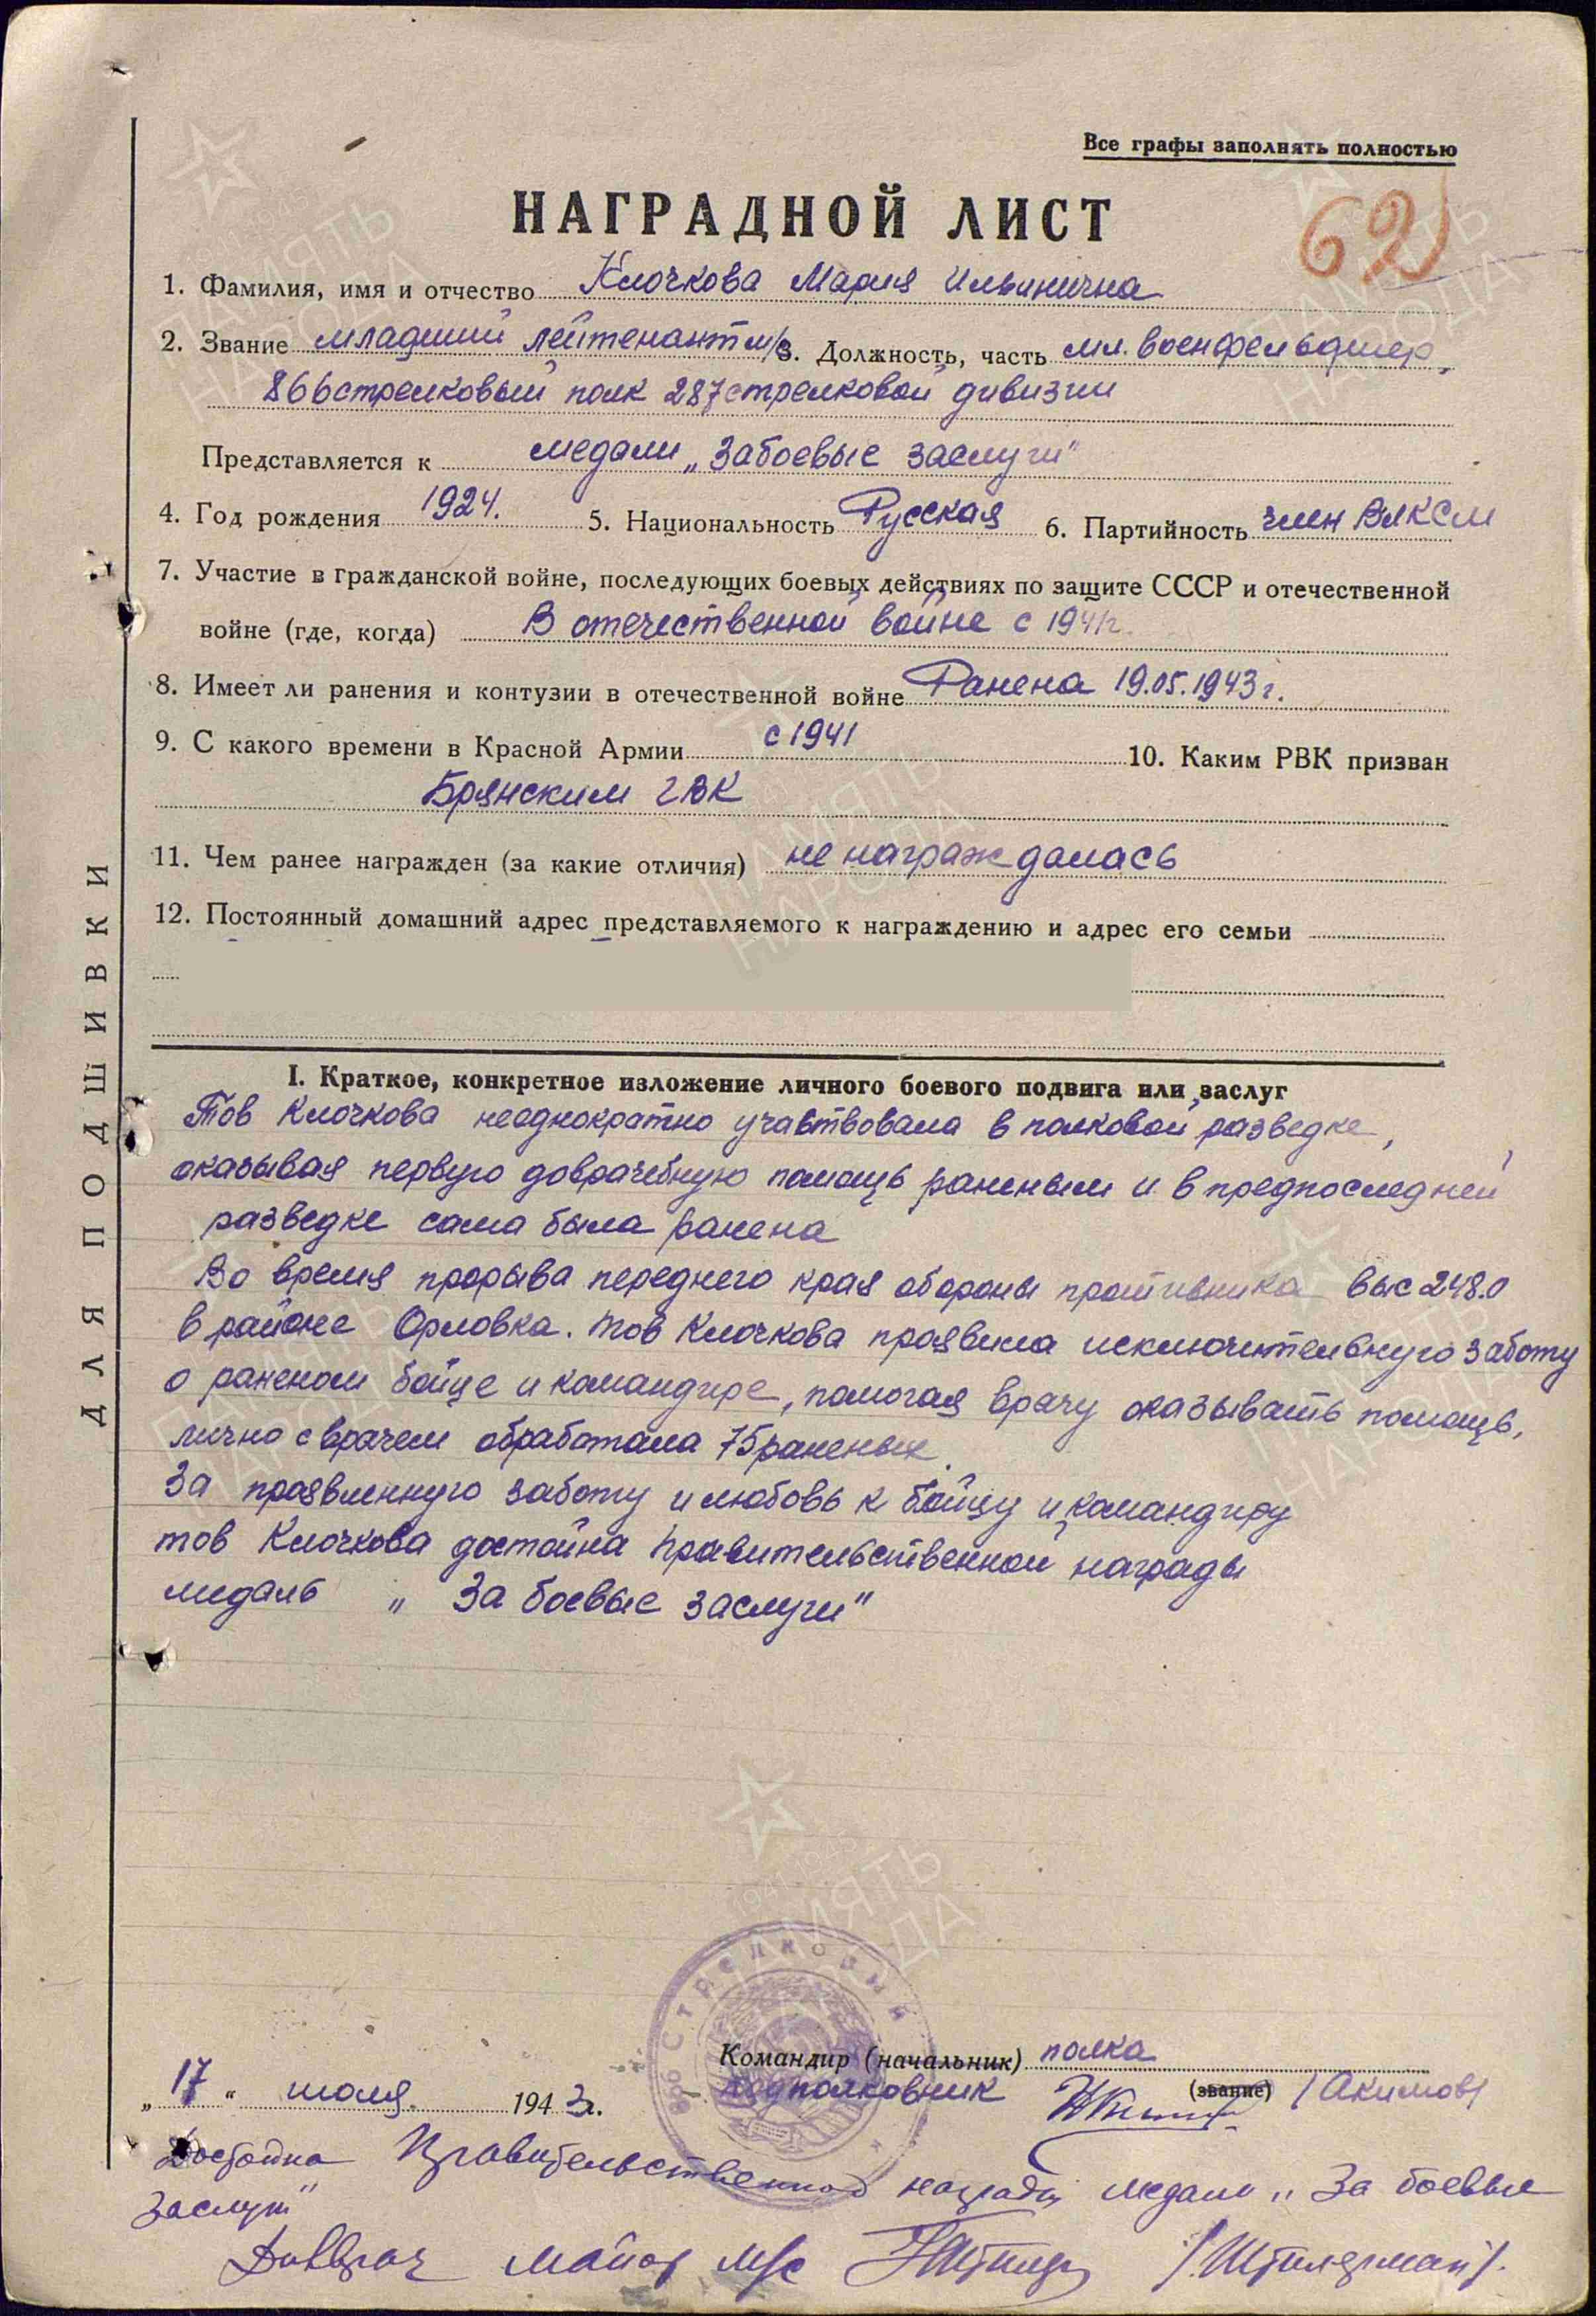 Все графы заполнять полностью
НАГРАДНОЙ ЛИСТ
62
1. Фамилия, имя и отчество Клочкова Мария Ильинична
2. Звание младший лейтенант м/с 3. Должность, часть мл. военфельдшер,
866 стрелковый полк 287 стрелковой дивизии
Представляется к медали „За боевые заслуги"
4. Год рождения 1924. 5. Национальность Русская 6. Партийность член ВЛКСМ
7. Участие в гражданской войне, последующих боевых действиях по защите СССР и отечественной
войне (где, когда) В отечественной войне с 1941 г.
8. Имеет ли ранения и контузии в отечественной войне Ранена 19.05.1943 г.
9. С какого времени в Красной Армии с 1941 10. Каким РВК призван
Брянским ГВК
11. Чем ранее награжден (за какие отличия) не награждалась
12. Постоянный домашний адрес представляемого к награждению и адрес его семьи
I. Краткое, конкретное изложение личного боевого подвига или заслуг
Тов Клочкова неоднократно участвовала в полковой разведке,
оказывая первую доврачебную помощь раненым и в предпоследней
разведке сама была ранена
Во время прорыва переднего края обороны противника выс 248.0
в районе Орловка. тов Клочкова проявила исключительную заботу
о раненом бойце и командире, помогая врачу оказывать помощь,
лично с врачем обработала 75 раненых.
За проявленную заботу и любовь к бойцу и командиру
тов Клочкова достойна Правительственной награды
медаль „За боевые заслуги"
ДЛЯ ПОДШИВКИ
Командир (начальник) полка
подполковник (звание) /Акимов/
„17" июля 1943 г.
866 СТРЕЛКОВЫЙ
Достойна Правительственной награды медали „За боевые
заслуги"
Дивврач майор м/с /Штилерман/.
ПАМЯТЬ
НАРОДА